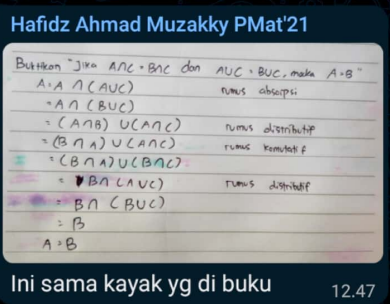 Hafidz Ahmad Muzakky PMat'21
Buktikan "Jika A∩C = B∩C dan A∪C = B∪C, maka A=B"
A = A ∩ (A∪C) rumus absorpsi
= A ∩ (B∪C)
= (A∩B) ∪ (A∩C) rumus distributif
= (B∩A) ∪ (A∩C) rumus komutatif
= (B∩A) ∪ (B∩C)
= B∩ (A∪C) rumus distributif
= B∩ (B∪C)
= B
A = B
Ini sama kayak yg di buku
12.47